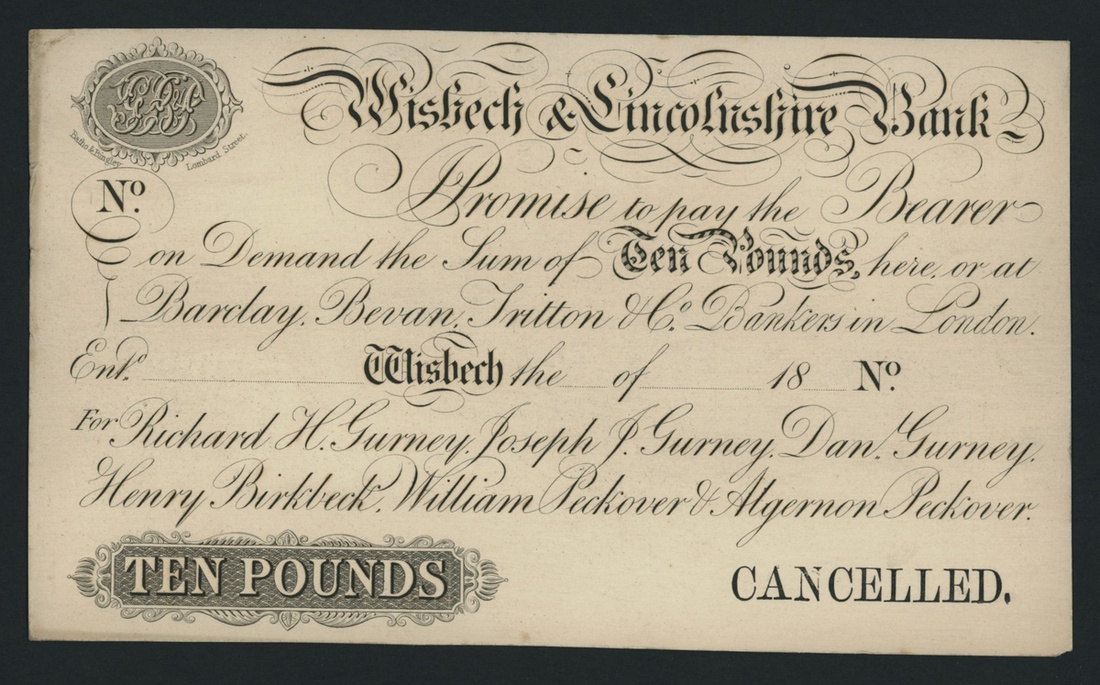 Wisbech & Lincolnshire Bank
Batho & Bingley
Lombard Street.
No.
I Promise to pay the Bearer
on Demand the Sum of Ten Pounds, here, or at
Barclay, Bevan, Tritton & Co. Bankers in London.
Entd. Wisbech the of 18 No
For Richard H. Gurney, Joseph J. Gurney, Danl. Gurney,
Henry Birkbeck, William Peckover & Algernon Peckover.
TEN POUNDS
CANCELLED.